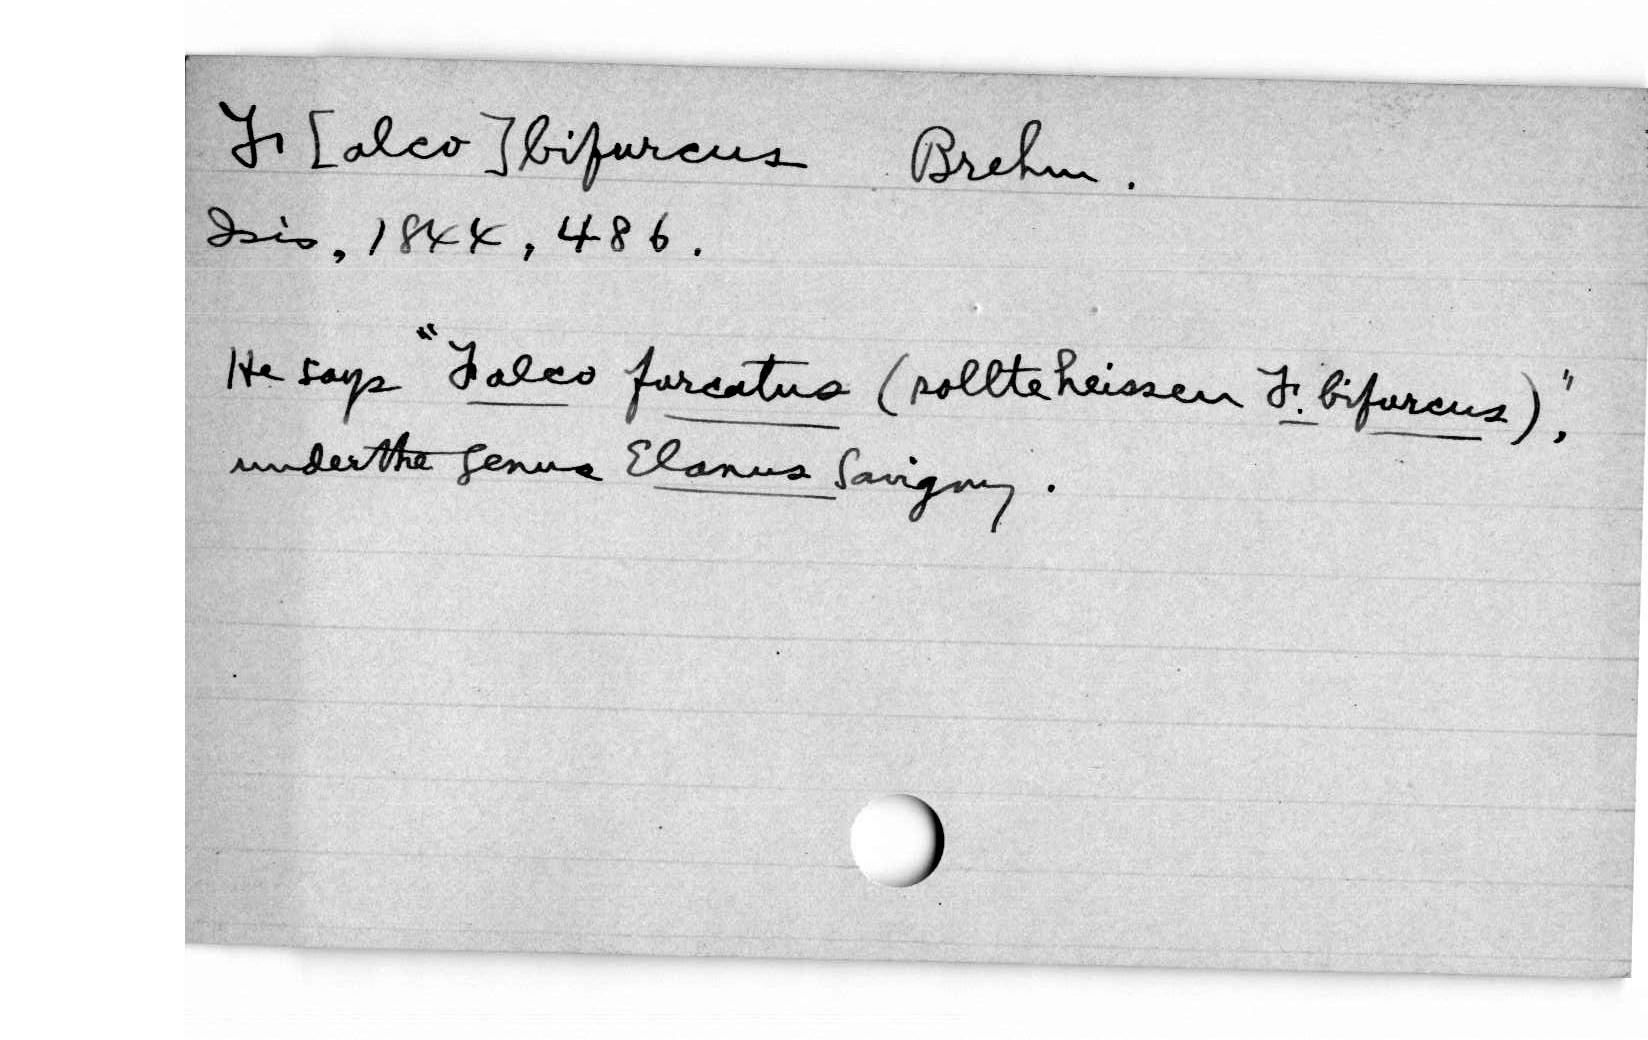 F[alco] bifurcus Brehm.
Isis, 1844, 486.
He says "Falco furcatus (sollte heissen F. bifurcus)",
under the genus Elanus Savigny.